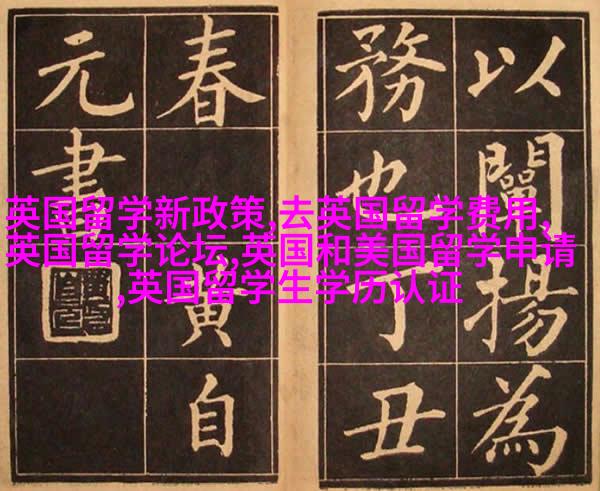 以闡揚為
務也丁丑
春黃自
元書
英国留学新政策,去英国留学费用,
英国留学论坛,英国和美国留学申请
,英国留学生学历认证